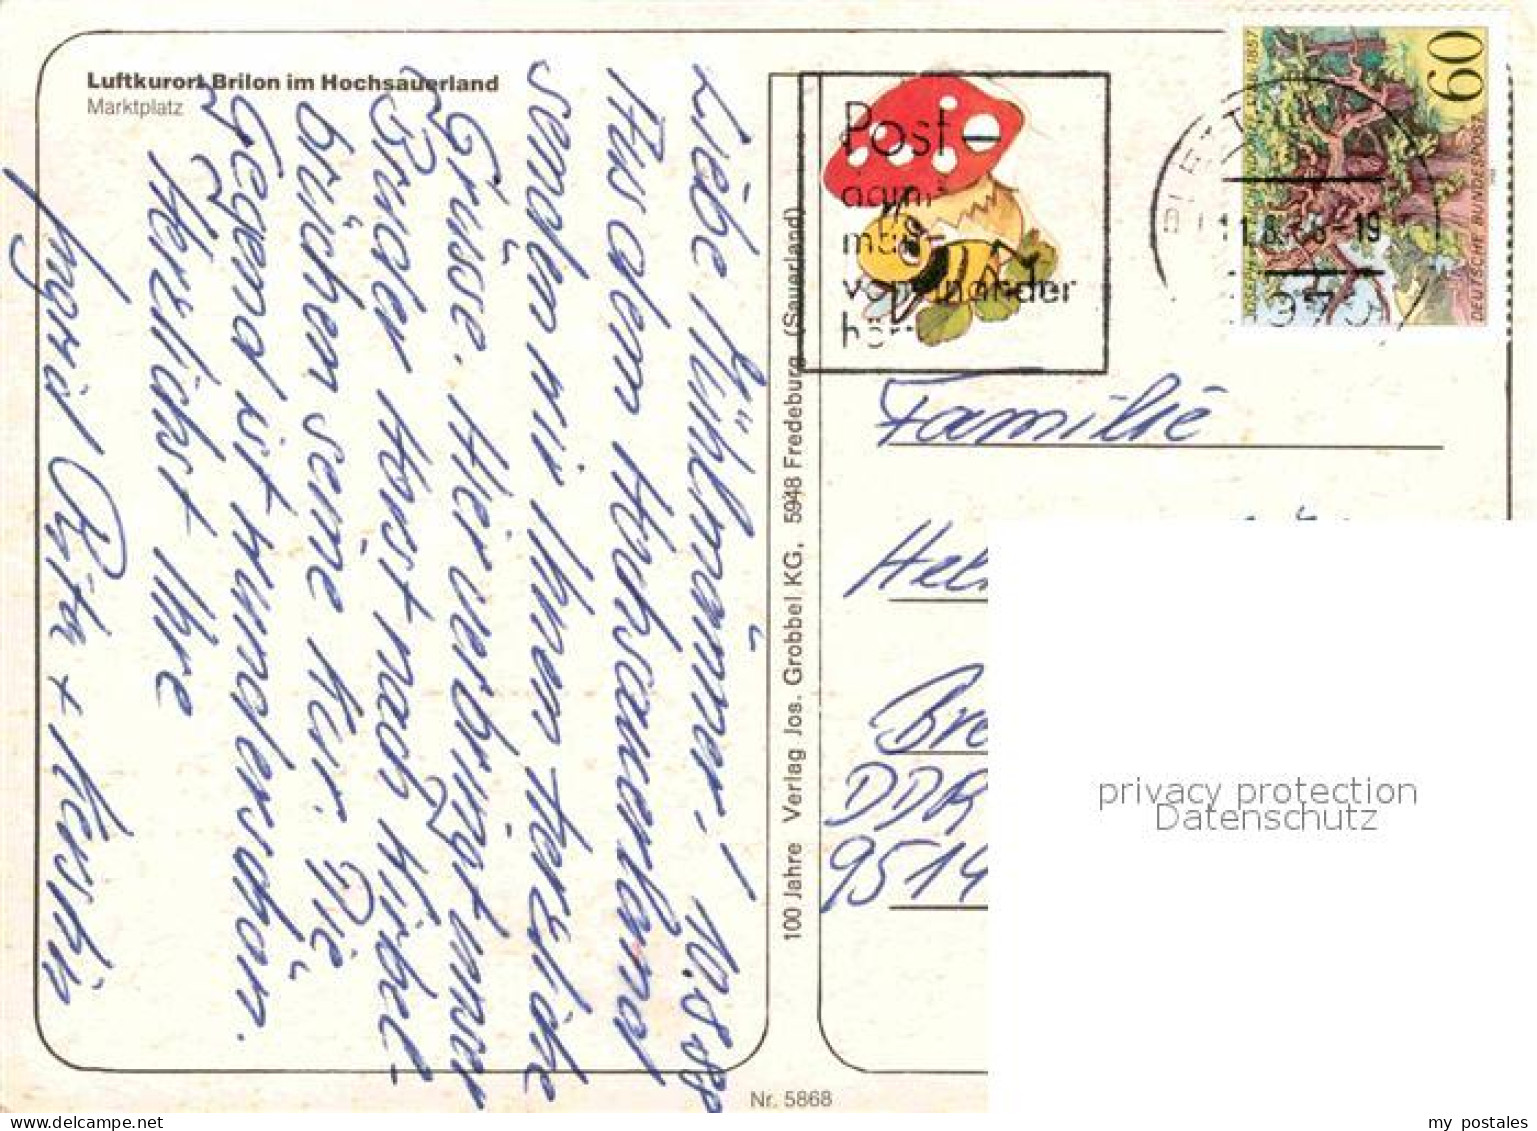 Luftkurort Brilon im Hochsauerland
Marktplatz
Liebe Mühlmänner! 10.8.88
Aus dem Hochsauerland
senden wir Ihnen herzliche
Grüsse. Hier verbringt unser
Bruder Horst nach Hirbel-
brüchen seine Kur. Die
Gegend ist wunderschön.
Herzlichst Ihre
Ingrid, Rita + Kerstin
100 Jahre Verlag Jos. Grobbel KG, 5948 Fredeburg (Sauerland)
Nr. 5868
Post –
damit
man
voneinander
hört
11.8.88-19
60
DEUTSCHE BUNDESPOST
Familie
DDR
9514
privacy protection
Datenschutz
my postales